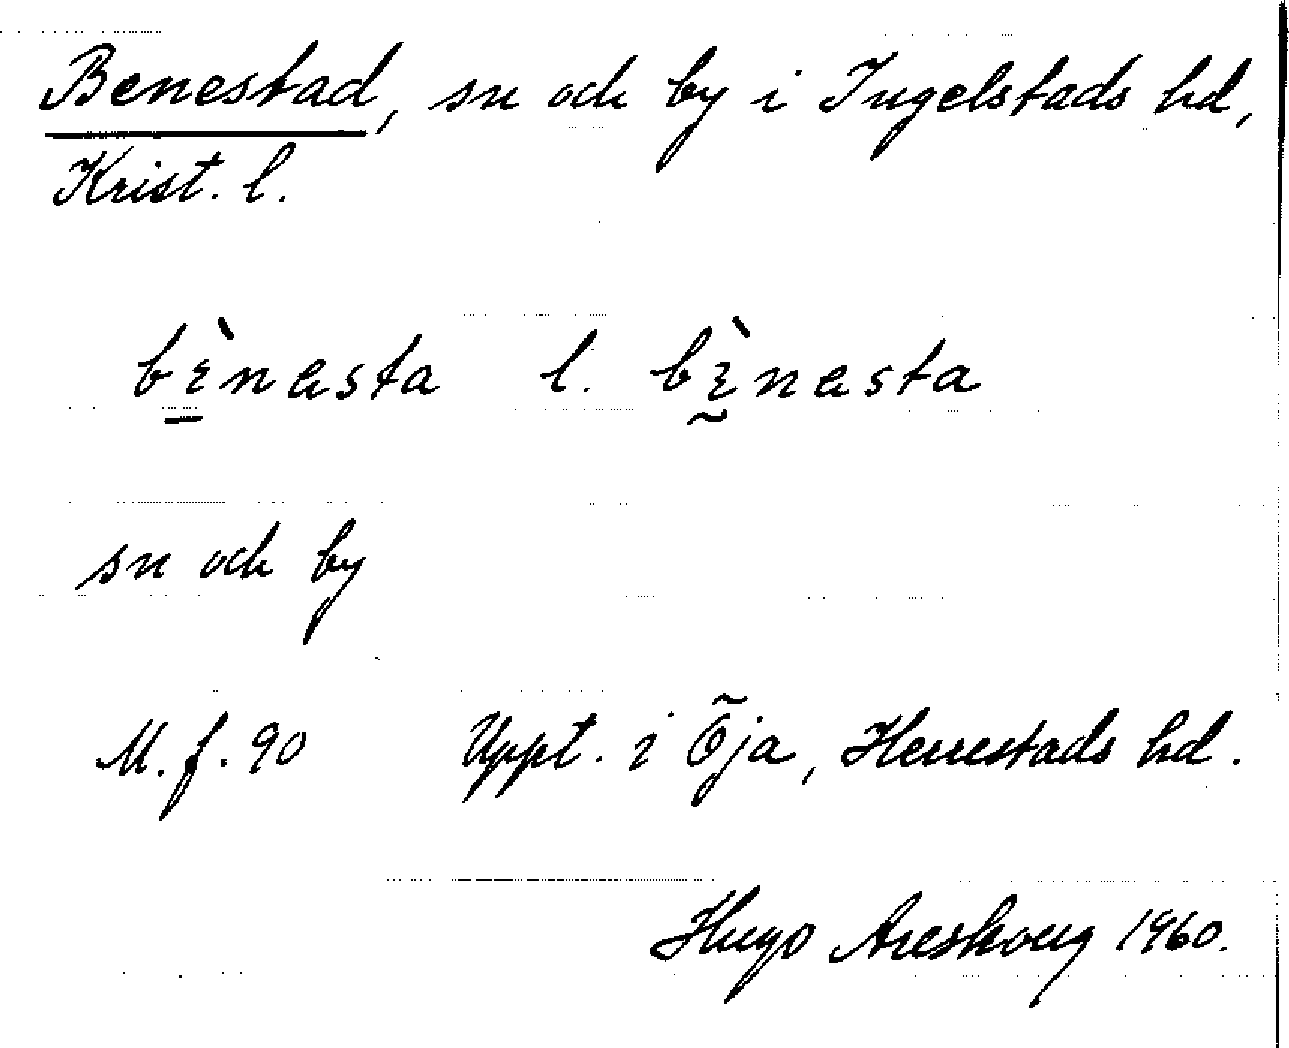 Benestad, sn och by i Ingelstads hd,
Krist. l.
bɛ̠̀nasta l. bɛ̰̀nasta
sn och by
M. f. 90 Uppt. i Öja, Herrestads hd.
Hugo Areskoug 1960.